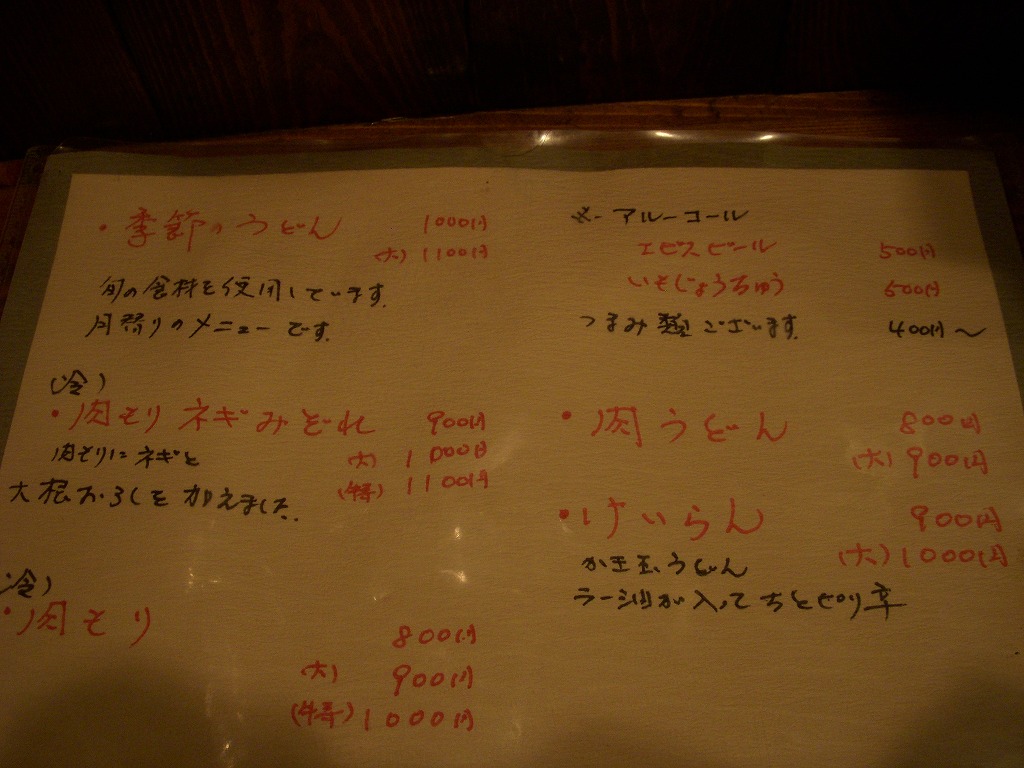 ・季節のうどん 1000円
(大) 1100円
旬の食材を使用しています。
月替りのメニューです。
(冷)
・肉もりネギみぞれ 900円
肉もりにネギと (大) 1000円
大根おろしを加えました。 (特) 1100円
(冷)
・肉もり 800円
(大) 900円
(特) 1000円
※-アルーコール
エビスビール 500円
いもじょうちゅう 500円
つまみ類ございます。 400円〜
・肉うどん 800円
(大) 900円
・けいらん 900円
かき玉うどん (大) 1000円
ラー油が入ってちとピリ辛